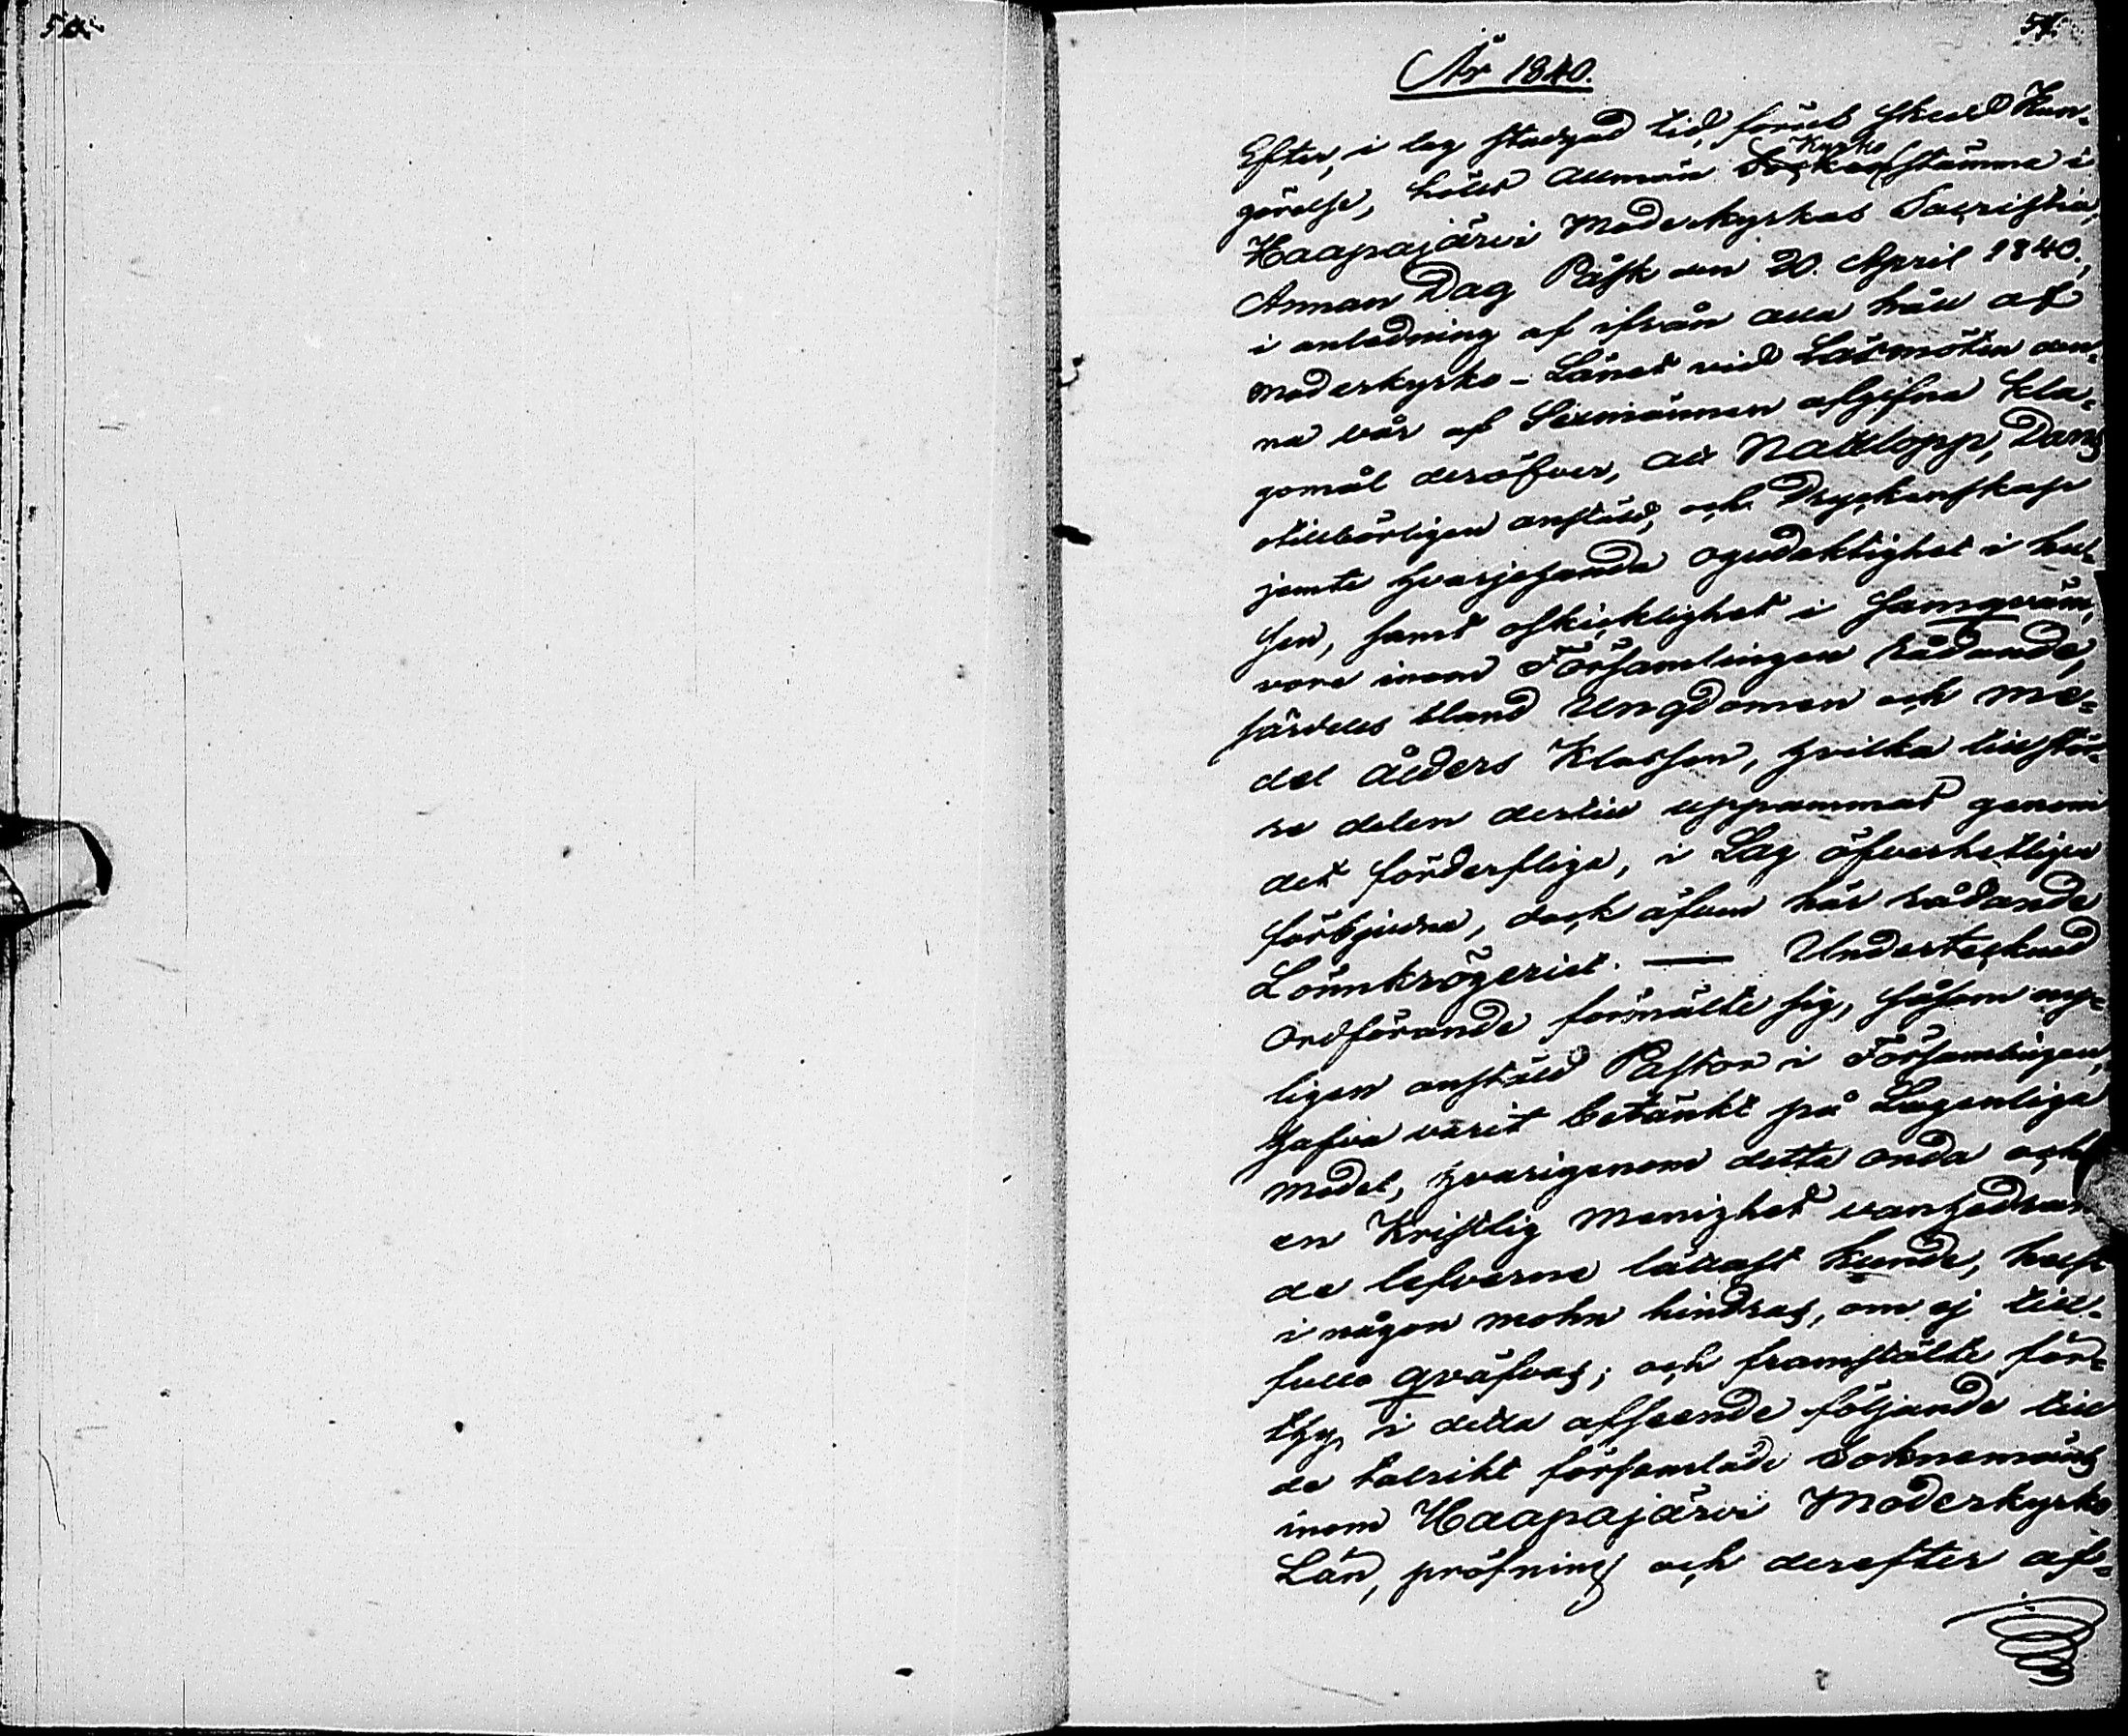 År 1840.
Efter, i lag stadgad tid, förut skedd Kun-
görelse, hölls allmän Kyrko stämma i
Haapajärvi Moderkyrkas Sacristia,
Annan Dag Påsk den 20. April 1840.,
i anledning af ifrån alla håll af
Moderkyrko-Länet vid Läsmöten den-
na vår af Sexmännen afgifna kla-
gomål deröfver, att Nattlopp, Dans
otillbörligen anstäld, och Dryckenskap
jemte hvarjehanda ogudaktighet i hel-
gen, samt oskicklighet i samqväm,
vore inom Församlingen rådande,
särdeles bland Ungdomen och me-
del Ålders Klassen, hvilka till stör-
re delen dertill uppammats genom
det förderfliga, i Lag öfverhetligen
förbjudna, dock äfven här rådande
Lönnkrögeriet. — Undertecknad
Ordförande förmälte sig, såsom ny-
ligen anstäld Pastor i Församlingen,
hafva varit betänkt på Lagenliga
medel, hvarigenom detta onda och
en Kristlig Menighet vanhedran-
de lefverne lättast kunde, helst
i någon mohn hindras, om ej till-
fullo qväfvas; och framstälte för-
thy i detta afseende följande till
de talrikt församlade Soknemäns
inom Haapajärvi Moderkyrko
Län, pröfning och derefter af-